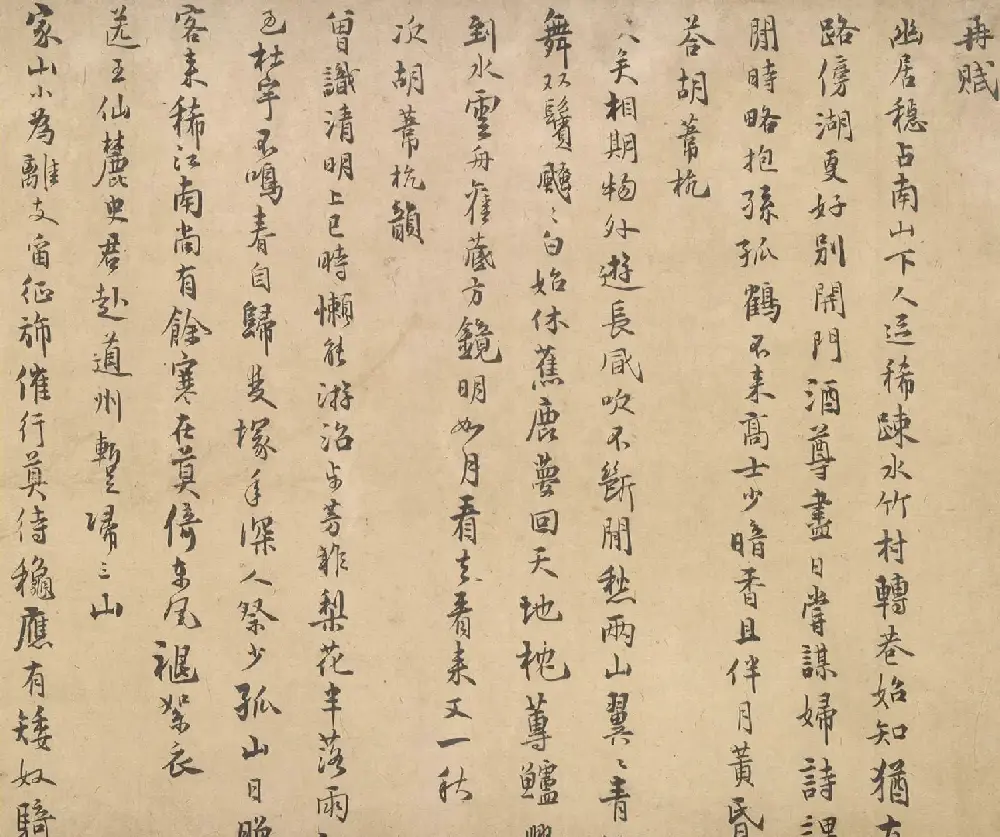 再賦
幽居穩占南山下人逕稀踈水竹村轉巷始知猶有
路傍湖更好別開門酒尊盡日嘗謀婦詩課
閒時略抱孫孤鶴不来高士少暗香且伴月黄昏
荅胡葦杭
久矣相期物外遊長風吹不斷閒愁兩山翼〻青
舞双鬢飀〻白始休蕉鹿夢回天地枕蓴鱸興
到水雲舟舊藏方鏡明如月看去看来又一秋
次胡葦杭韻
曾識清明上巳時懶能游冶步芳菲梨花半落雨
杜宇不鳴春自歸雙塚年深人祭少孤山日
客来稀江南尚有餘寒在莫倚東風褪絮衣
送王仙麓史君赴道州暫歸三山
家山小為離支留征斾催行莫待龝應有矮奴騎